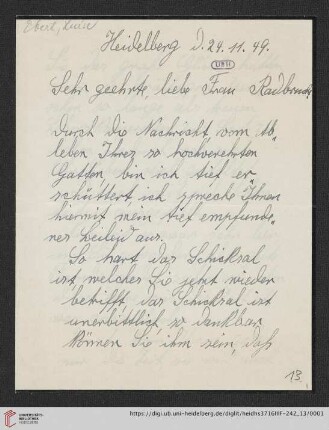 Ebert, Luise
Heidelberg d. 24.11.49.
Sehr geehrte, liebe Frau Radbruch,
Durch die Nachricht vom Ab„
leben Ihres so hochverehrten
Gatten, bin ich tief er„
schüttert, ich spreche Ihnen
hiermit mein tief empfunde„
nes Beileid aus.
So hart das Schicksal
ist, welches Sie jetzt wieder
betrifft, das Schicksal ist
unerbittlich, so dankbar
können Sie ihm sein, daß
13.
UNIVERSITÄTS-
BIBLIOTHEK
HEIDELBERG
https://digi.ub.uni-heidelberg.de/diglit/heidhs3716IIIF-242_13/0001